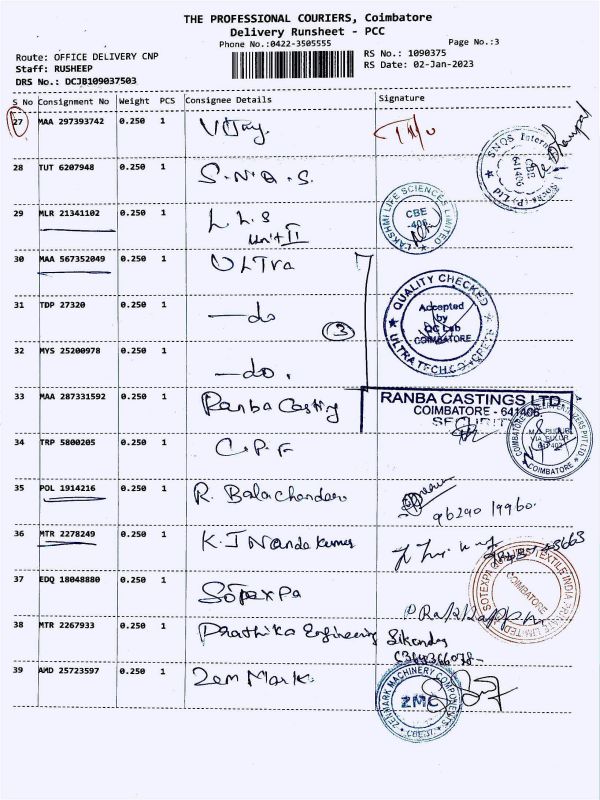 THE PROFESSIONAL COURIERS, Coimbatore
Delivery Runsheet - PCC
Phone No.:0422-3505555
Page No.:3
Route: OFFICE DELIVERY CNP
RS No.: 1090375
Staff: RUSHEEP
RS Date: 02-Jan-2023
DRS No.: DCJB109037503
S No Consignment No Weight PCS Consignee Details Signature
27 MAA 297393742 0.250 1 Vijay
28 TUT 6207948 0.250 1 S.N.Q.S.
SNQS CBE 641406
29 MLR 21341102 0.250 1 L L S
Unit II
LAKSHMI LIFE SCIENCES LIMITED CBE -406
30 MAA 567352049 0.250 1 ULTra
31 TDP 27320 0.250 1 —do
3
QUALITY CHECKED
Accepted
by
QC Lab
COIMBATORE
32 MYS 25200978 0.250 1 —do.
33 MAA 287331592 0.250 1 Ranba Casting
RANBA CASTINGS LTD
COIMBATORE - 641406.
SECURITY
34 TRP 5800205 0.250 1 C.P.F
COIMBATORE
35 POL 1914216 0.250 1 R. Balachander
36 MTR 2278249 0.250 1 K.J Nanda Kumar
37 EDQ 18048880 0.250 1 Sotexpa
COIMBATORE
38 MTR 2267933 0.250 1 Prathika Engineering
39 AMD 25723597 0.250 1 Zen Mark.
ZENMARK MACHINERY COMPONENTS
ZMC
CBE-37